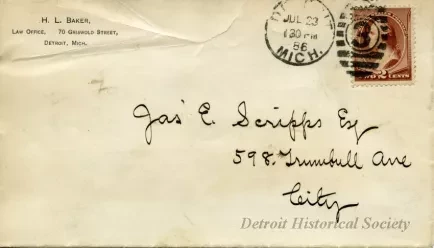 H. L. BAKER,
LAW OFFICE, 70 GRISWOLD STREET,
DETROIT, MICH.
JUL 23
130 PM
86
MICH.
3
2 CENTS
Jas' E. Scripps Esq
598. Trumbull Ave
City
Detroit Historical Society